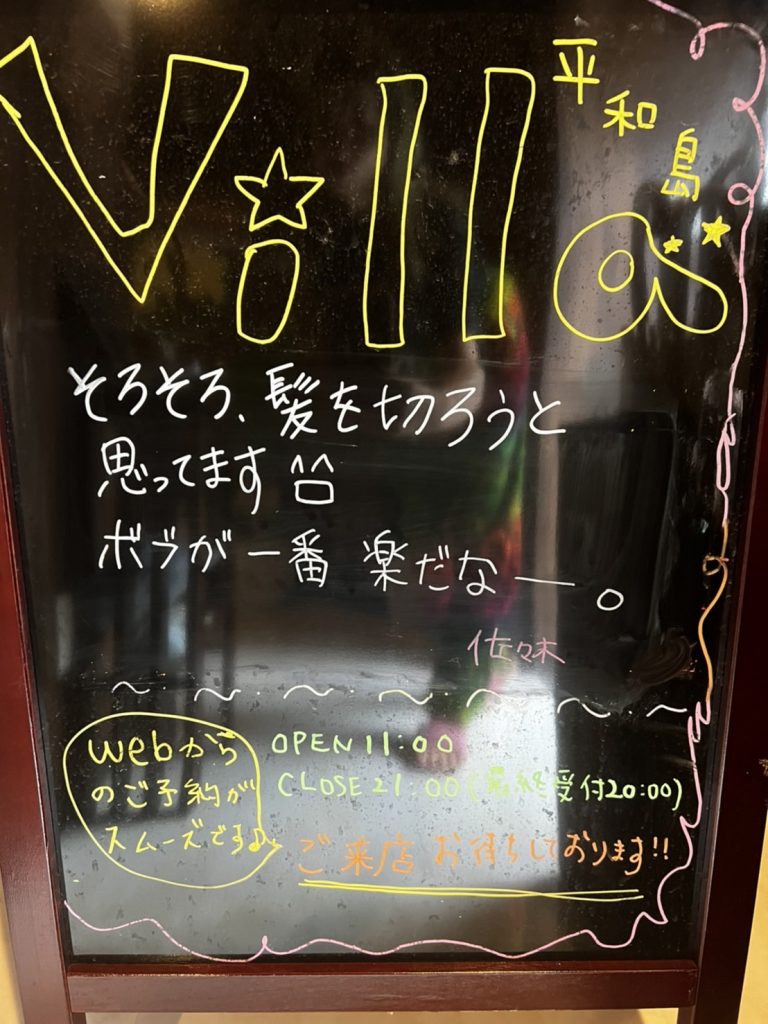 Villa
平和島
そろそろ、髪を切ろうと
思ってます
ボブが一番 楽だなー。
佐々木
〜・〜・〜・〜・〜・〜・〜
webから
のご予約が
スムーズです♪
OPEN 11:00
CLOSE 21:00 (最終受付20:00)
ご来店お待ちしております!!